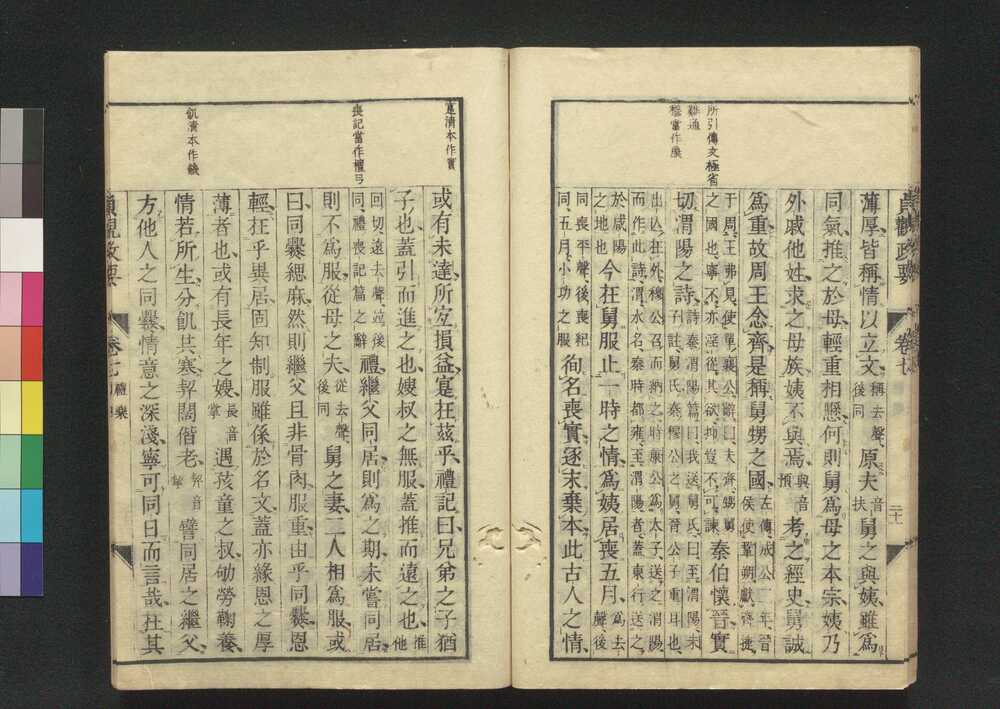 所引傳文極省
難通
穆當作康
薄厚皆稱情以立文稱去聲後同原夫音扶舅之與姨雖爲
同氣推之於母輕重相懸何則舅爲母之本宗姨乃
外戚他姓求之母族姨不與焉與音預考之經史舅誠
爲重故周王念齊是稱舅甥之國左傳成公二年晉侯使鞏朔獻齊捷
于周王弗見使單襄公辭曰夫齊甥舅之國也寧不亦淫從其欲抑豈不可諫秦伯懷晉實
切渭陽之詩詩秦渭陽篇曰我送舅氏曰至渭陽朱子註舅氏秦穆公之舅晉公子重耳也
出亡在外穆公召而納之時康公爲太子送之渭陽而作此詩渭水名秦時都雍至渭陽者蓋東行送之
於咸陽之地也今在舅服止一時之情爲姨居喪五月爲去聲後
同喪平聲後喪紀同五月小功之服徇名喪實逐末棄本此古人之情
貞觀政要
卷七
二十
寔濟本作實
喪記當作檀弓
飢濟本作饑
或有未達所宜損益寔在茲乎禮記曰兄弟之子猶
子也蓋引而進之也嫂叔之無服蓋推而遠之也推他
回切遠去聲竝後同禮喪記篇之辭禮繼父同居則爲之期未嘗同居
則不爲服從母之夫從去聲後同舅之妻二人相爲服或
曰同爨緦麻然則繼父且非骨肉服重由乎同爨恩
輕在乎異居固知制服雖係於名文蓋亦緣恩之厚
薄者也或有長年之嫂長音掌遇孩童之叔劬勞鞠養
情若所生分飢共寒契闊偕老契音挈譬同居之繼父
方他人之同爨情意之深淺寧可同日而言哉在其
貞觀政要
卷七
禮樂